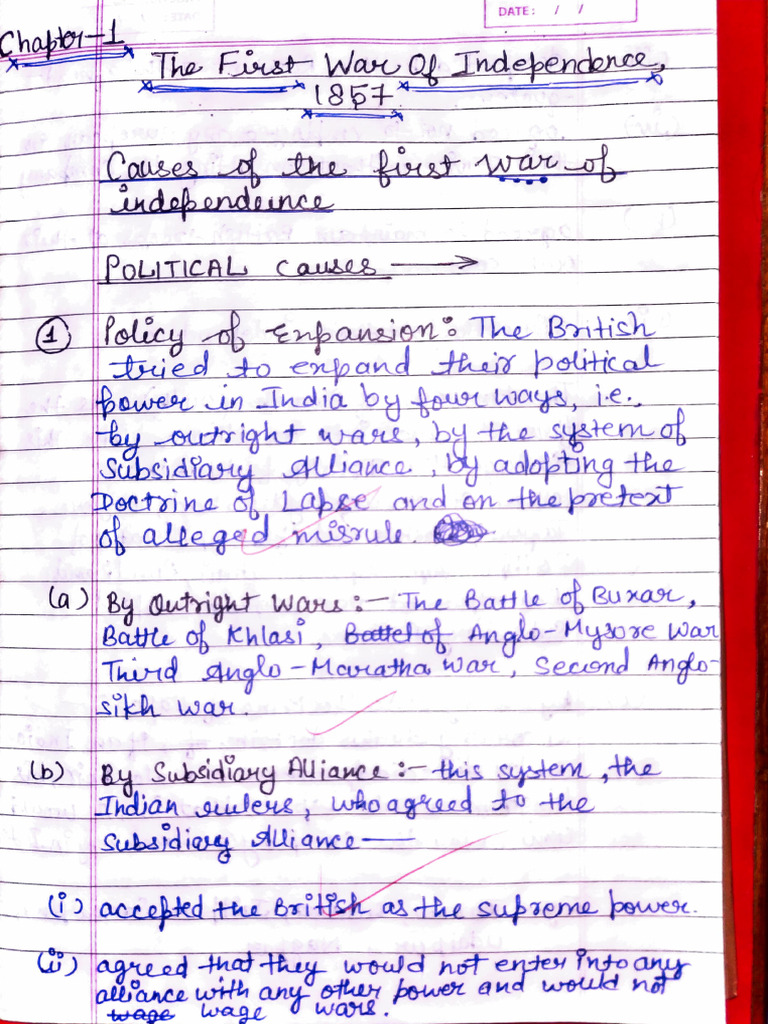 DATE: / /
Chapter-1
The First War Of Independence,
1857
Causes of the first war of
independeince
POLITICAL causes →
① Policy of Enpansion: The British
tried to expand their political
power in India by four ways, i.e.,
by outright wars, by the system of
Subsidiary Alliance, by adopting the
Doctrine of Lapse and on the pretext
of alleged misrule.
(a) By Outright Wars :- The Battle of Buxar,
Battle of Khlasi, Battel of Anglo-Mysore War
Third Anglo-Maratha War, Second Anglo-
sikh war.
(b) By Subsidiary Alliance :- this system, the
Indian rulers, who agreed to the
Subsidiary Alliance—
(i) accepted the British as the supreme power.
(ii) agreed that they would not enter into any
alliance with any other power and would not
wage wage wars.